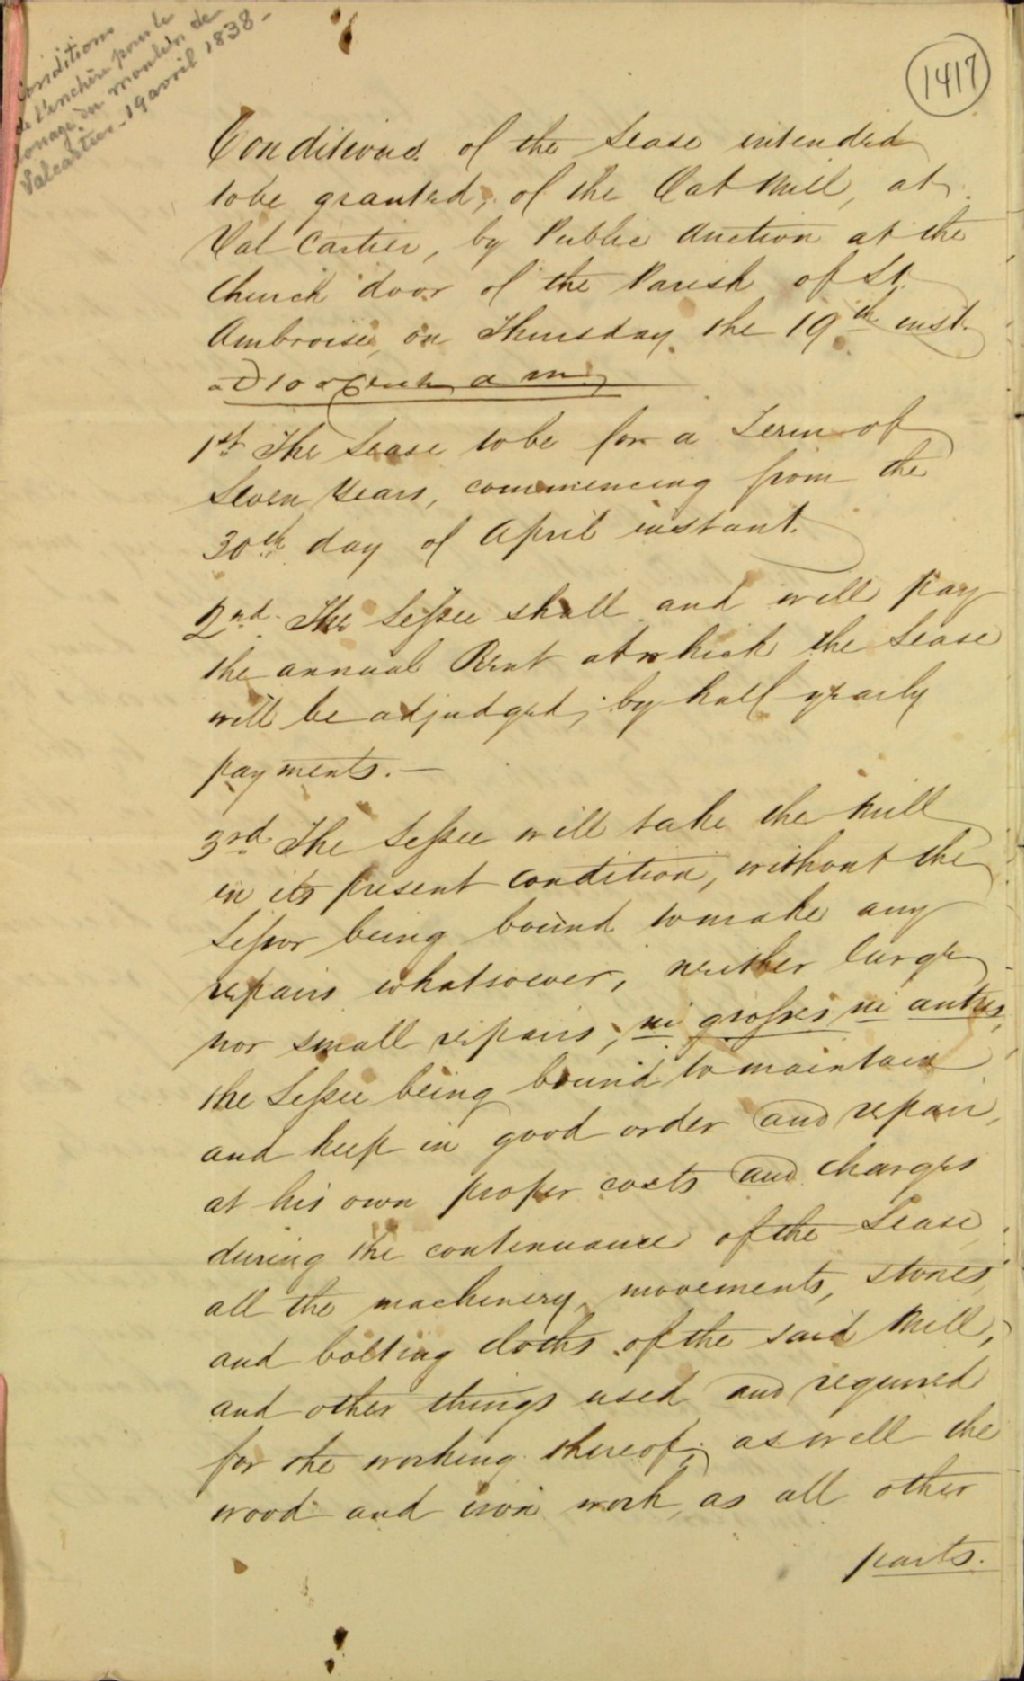 Conditions
de l'enchère pour le
louage du moulin de
Valcartier - 19 avril 1838 -
1417
Conditions of the Lease intended
to be granted, of the Oat Mill, at
Val Cartier, by Public Auction at the
Church door of the Parish of St.
Ambroise, on Thursday the 19th inst.
at 10 o'Clock a m
1st The Lease to be for a Term of
Seven Years, commencing from the
30th day of April instant.
2nd The Lessee shall and will pay
the annual Rent at which the Lease
will be adjudged, by half yearly
payments. —
3rd The Lessee will take the Mill
in its present condition, without the
Lessor being bound to make any
repairs whatsoever, neither large
nor small repairs, ni grosses ni autres,
the Lessee being bound to maintain
and keep in good order and repair,
at his own proper costs and charges
during the continuance of the Lease
all the machinery, movements, stones,
and bolting cloths of the said Mill,
and other things used and required
for the working thereof, as well the
wood and iron work, as all other
parts.